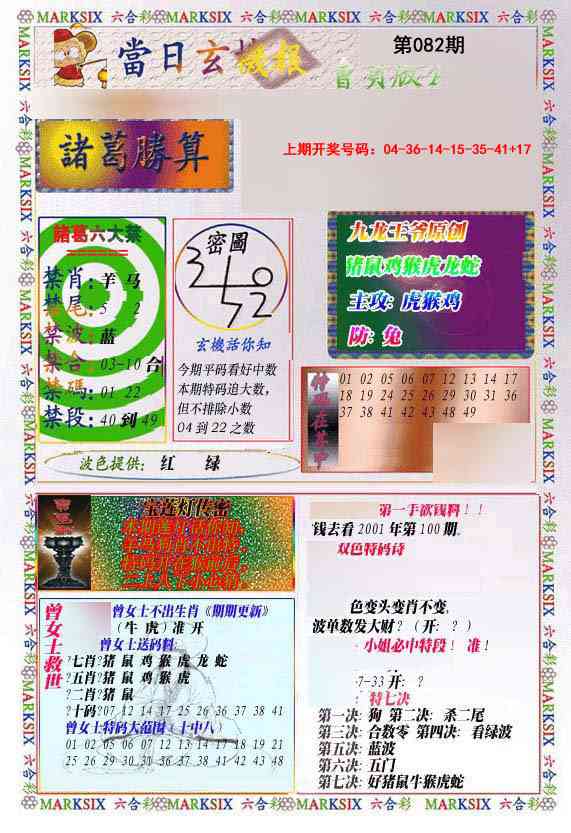 MARKSIX 六合彩 MARKSIX 六合彩 MARKSIX 六合彩 MARKSIX 六合彩 MARKSIX
當日玄機報
第082期
諸葛勝算
上期开奖号码：04-36-14-15-35-41+17
諸葛六大禁
禁肖：羊 马
禁尾：5 2
禁波：蓝
禁合：03-10 合
禁碼：01 22
禁段：40 到 49
密圖
玄機話你知
今期平码看好中数
本期特码追大数，
但不排除小数
04 到 22 之数
九龙王爷原创
猪鼠鸡猴虎龙蛇
主攻：虎猴鸡
防：兔
01 02 05 06 07 12 13 14 17
18 19 24 25 26 29 30 31 36
37 38 41 42 43 48 49
波色提供： 红 绿
宝莲灯传密
曾女士救世
曾女士不出生肖《期期更新》
（牛 虎）准 开
曾女士送码料：
?七肖?猪 鼠 鸡 猴 虎 龙 蛇
?五肖?猪 鼠 鸡 猴 虎
?二肖?猪 鼠
?十码?07 12 14 17 25 26 36 37 38 41
曾女士特码大范围（十中八）
01 02 05 06 07 12 13 14 17 18 19 21
25 26 29 30 31 36 37 38 41 42 43 48
第一手欲钱料！！
钱去看 2001 年第 100 期。
双色特码诗
色变头变肖不变，
波单数发大财？（开：？）
小姐必中特段！ 准！
7-33 开：？
特七决
第一决：狗 第二决：杀二尾
第三决：合数零 第四决：看绿波
第五决：蓝波
第六决：五门
第七决：好猪鼠牛猴虎蛇
MARKSIX 六合彩 MARKSIX 六合彩 MARKSIX 六合彩 MARKSIX 六合彩 MARKSIX